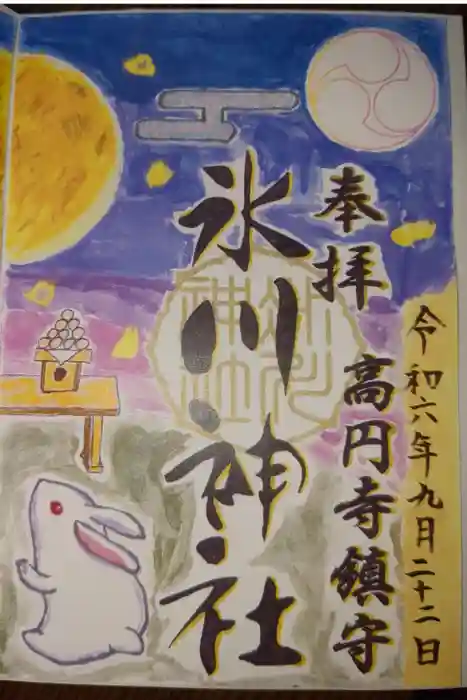 奉拝 高円寺鎮守
氷川神社
令和六年九月二十二日